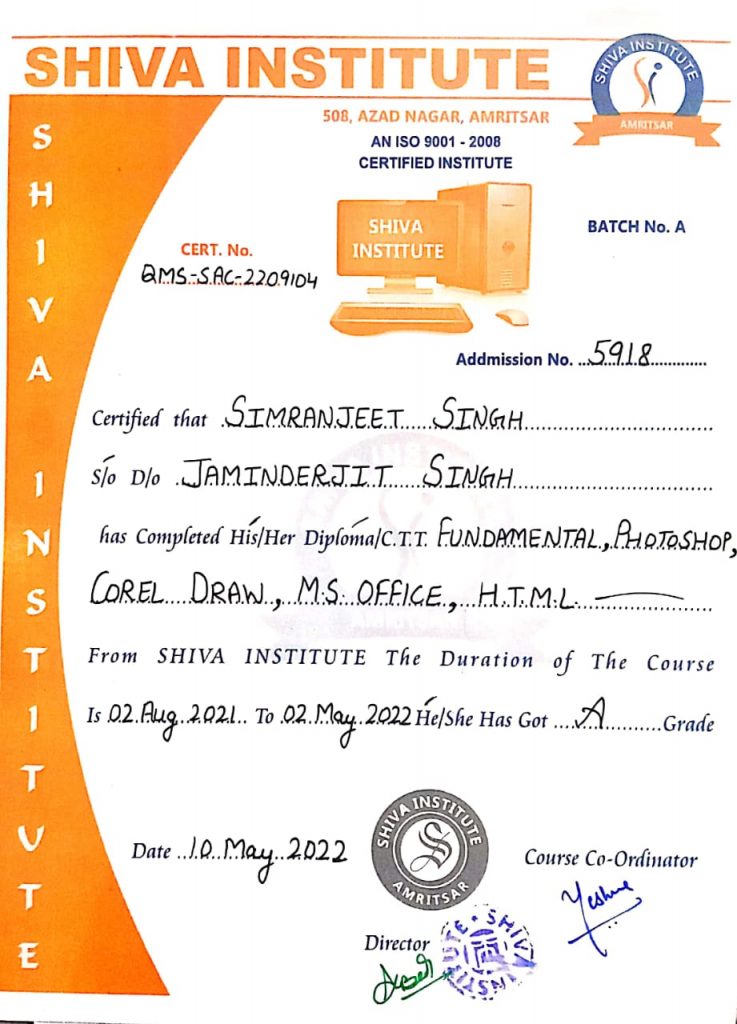 SHIVA INSTITUTE
SHIVA INSTITUTE
AMRITSAR
508, AZAD NAGAR, AMRITSAR
AN ISO 9001 - 2008
CERTIFIED INSTITUTE
SHIVA INSTITUTE
SHIVA
INSTITUTE
BATCH No. A
CERT. No.
QMS-SAC-2209104
Addmission No. 5918
Certified that SIMRANJEET SINGH
S/o D/o JAMINDERJIT SINGH
has Completed His/Her Diploma/C.T.T. FUNDAMENTAL, PHOTOSHOP,
COREL DRAW, M.S. OFFICE, H.T.M.L
From SHIVA INSTITUTE The Duration of The Course
Is 02 Aug 2021 To 02 May 2022 He/She Has Got A Grade
Date 10 May 2022
SHIVA INSTITUTE
AMRITSAR
Course Co-Ordinator
Director
SHIVA INSTITUTE